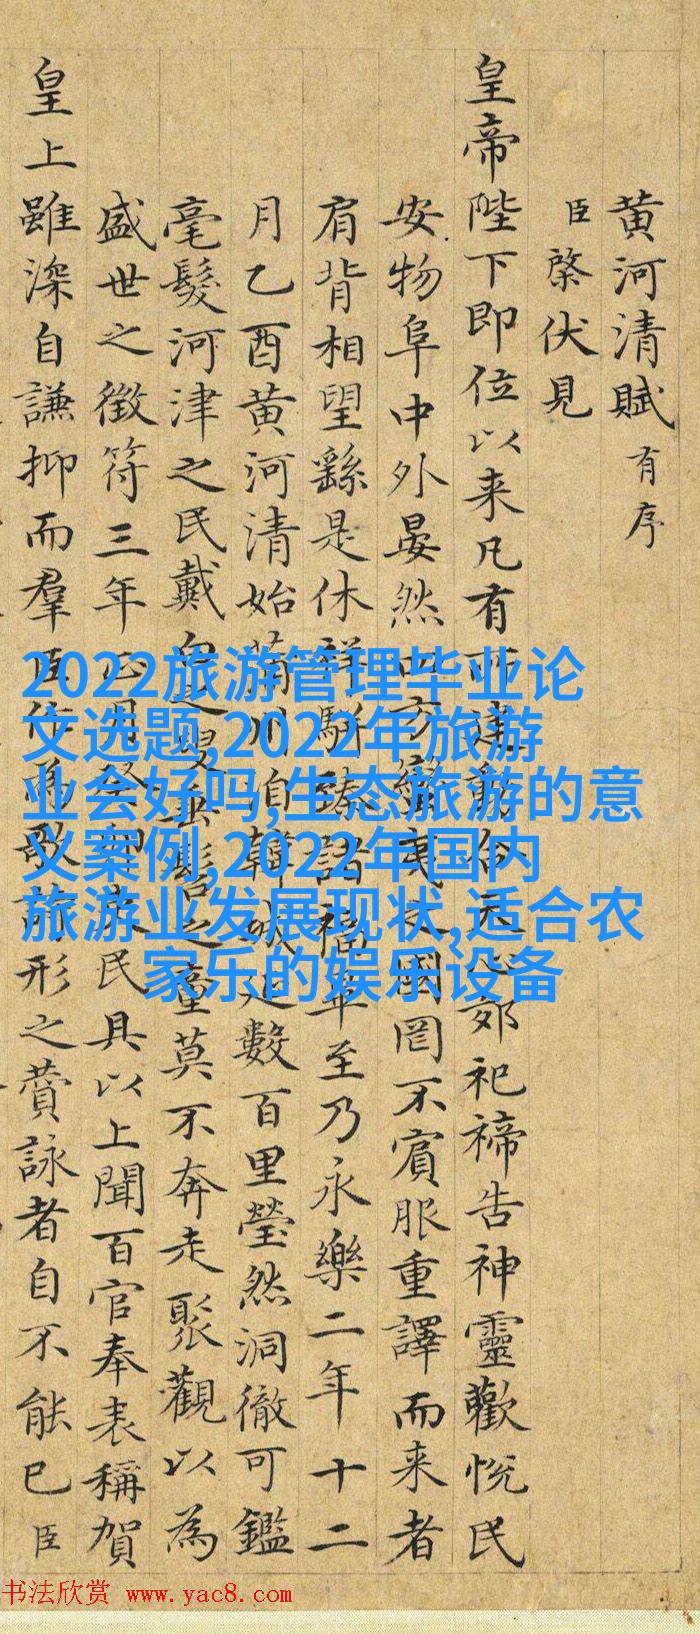 黄河清賦 有序
臣棨伏見
皇帝陛下即位以来凡有所建動合天心郊祀禘告神靈歡悅民
安物阜中外晏然四方蠻夷之國罔不賔服重譯而来者
肩背相望繇是休祥駢臻諸福畢至乃永樂二年十二
月乙酉黄河清始蒲州洎韓城延數百里瑩然洞徹可鑑
毫髮河津之民戴白之叟垂髫之童莫不奔走聚觀以為
盛世之徵符三年民具以上聞百官奉表稱賀
皇上雖深自謙抑而羣臣作為歌詩形之賛詠者自不能已臣
2022旅游管理毕业论
文选题,2022年旅游
业会好吗,生态旅游的意
义案例,2022年国内
旅游业发展现状,适合农
家乐的娱乐设备
书法欣赏 www.yac8.com